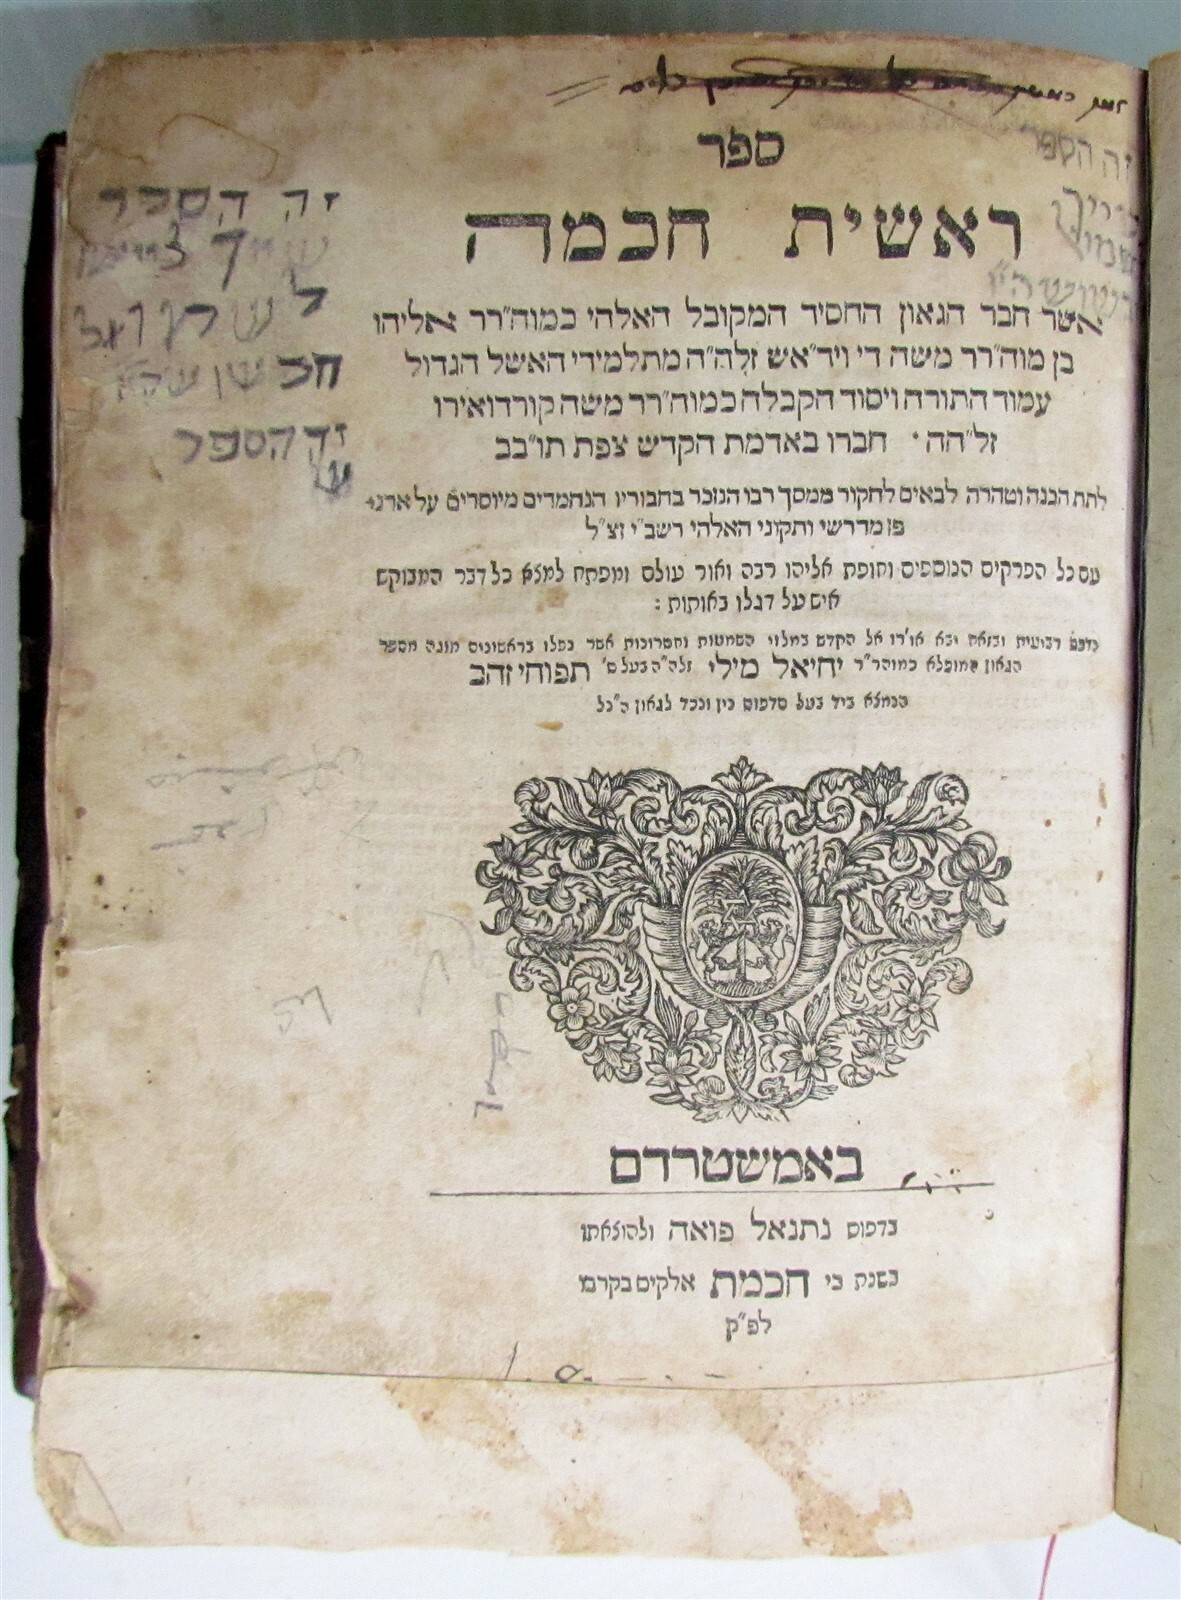 ספר
ראשית חכמה
אשר חבר הגאון החסיד המקובל האלהי כמוה״רר אליהו
בן מוה״רר משה די ויד״אש זלה״ה מתלמידי האשל הגדול
עמוד התורה ויסוד הקבלה כמוה״רר משה קורדואירו
זל״הה · חברו באדמת הקדש צפת תו״בב
לתת הבנה וטהרה לבאים לחקור ממסך רבו הנזכר בחבוריו הנחמדים מיוסדים על אדני
פז מדרשי ותקוני האלהי רשב״י זצ״ל
עם כל הפרקים הנוספים וחופת אליהו רבה ואור עולם ומפתח למצא כל דבר המבוקש
איש על דגלו באותות :
נדפס רביעית ובזאת יבא או׳רו אל הקדש במלוי השמטות וחסרונות אשר נפלו בראשונים מוגה מספר
הגאון המופלא כמוהר״ר יחיאל מילי זלה״ה בעל ס׳ תפוחי זהב
הנמצא ביד בעל הדפוס נין ונכד לגאון ה״נל
באמשטרדם
בדפוס נתנאל פואה ולהוצאתו
בשנת כי חכמת אלקים בקרבו
לפ״ק
זה הספר
שייך
ל
זה הספר
זה הספר